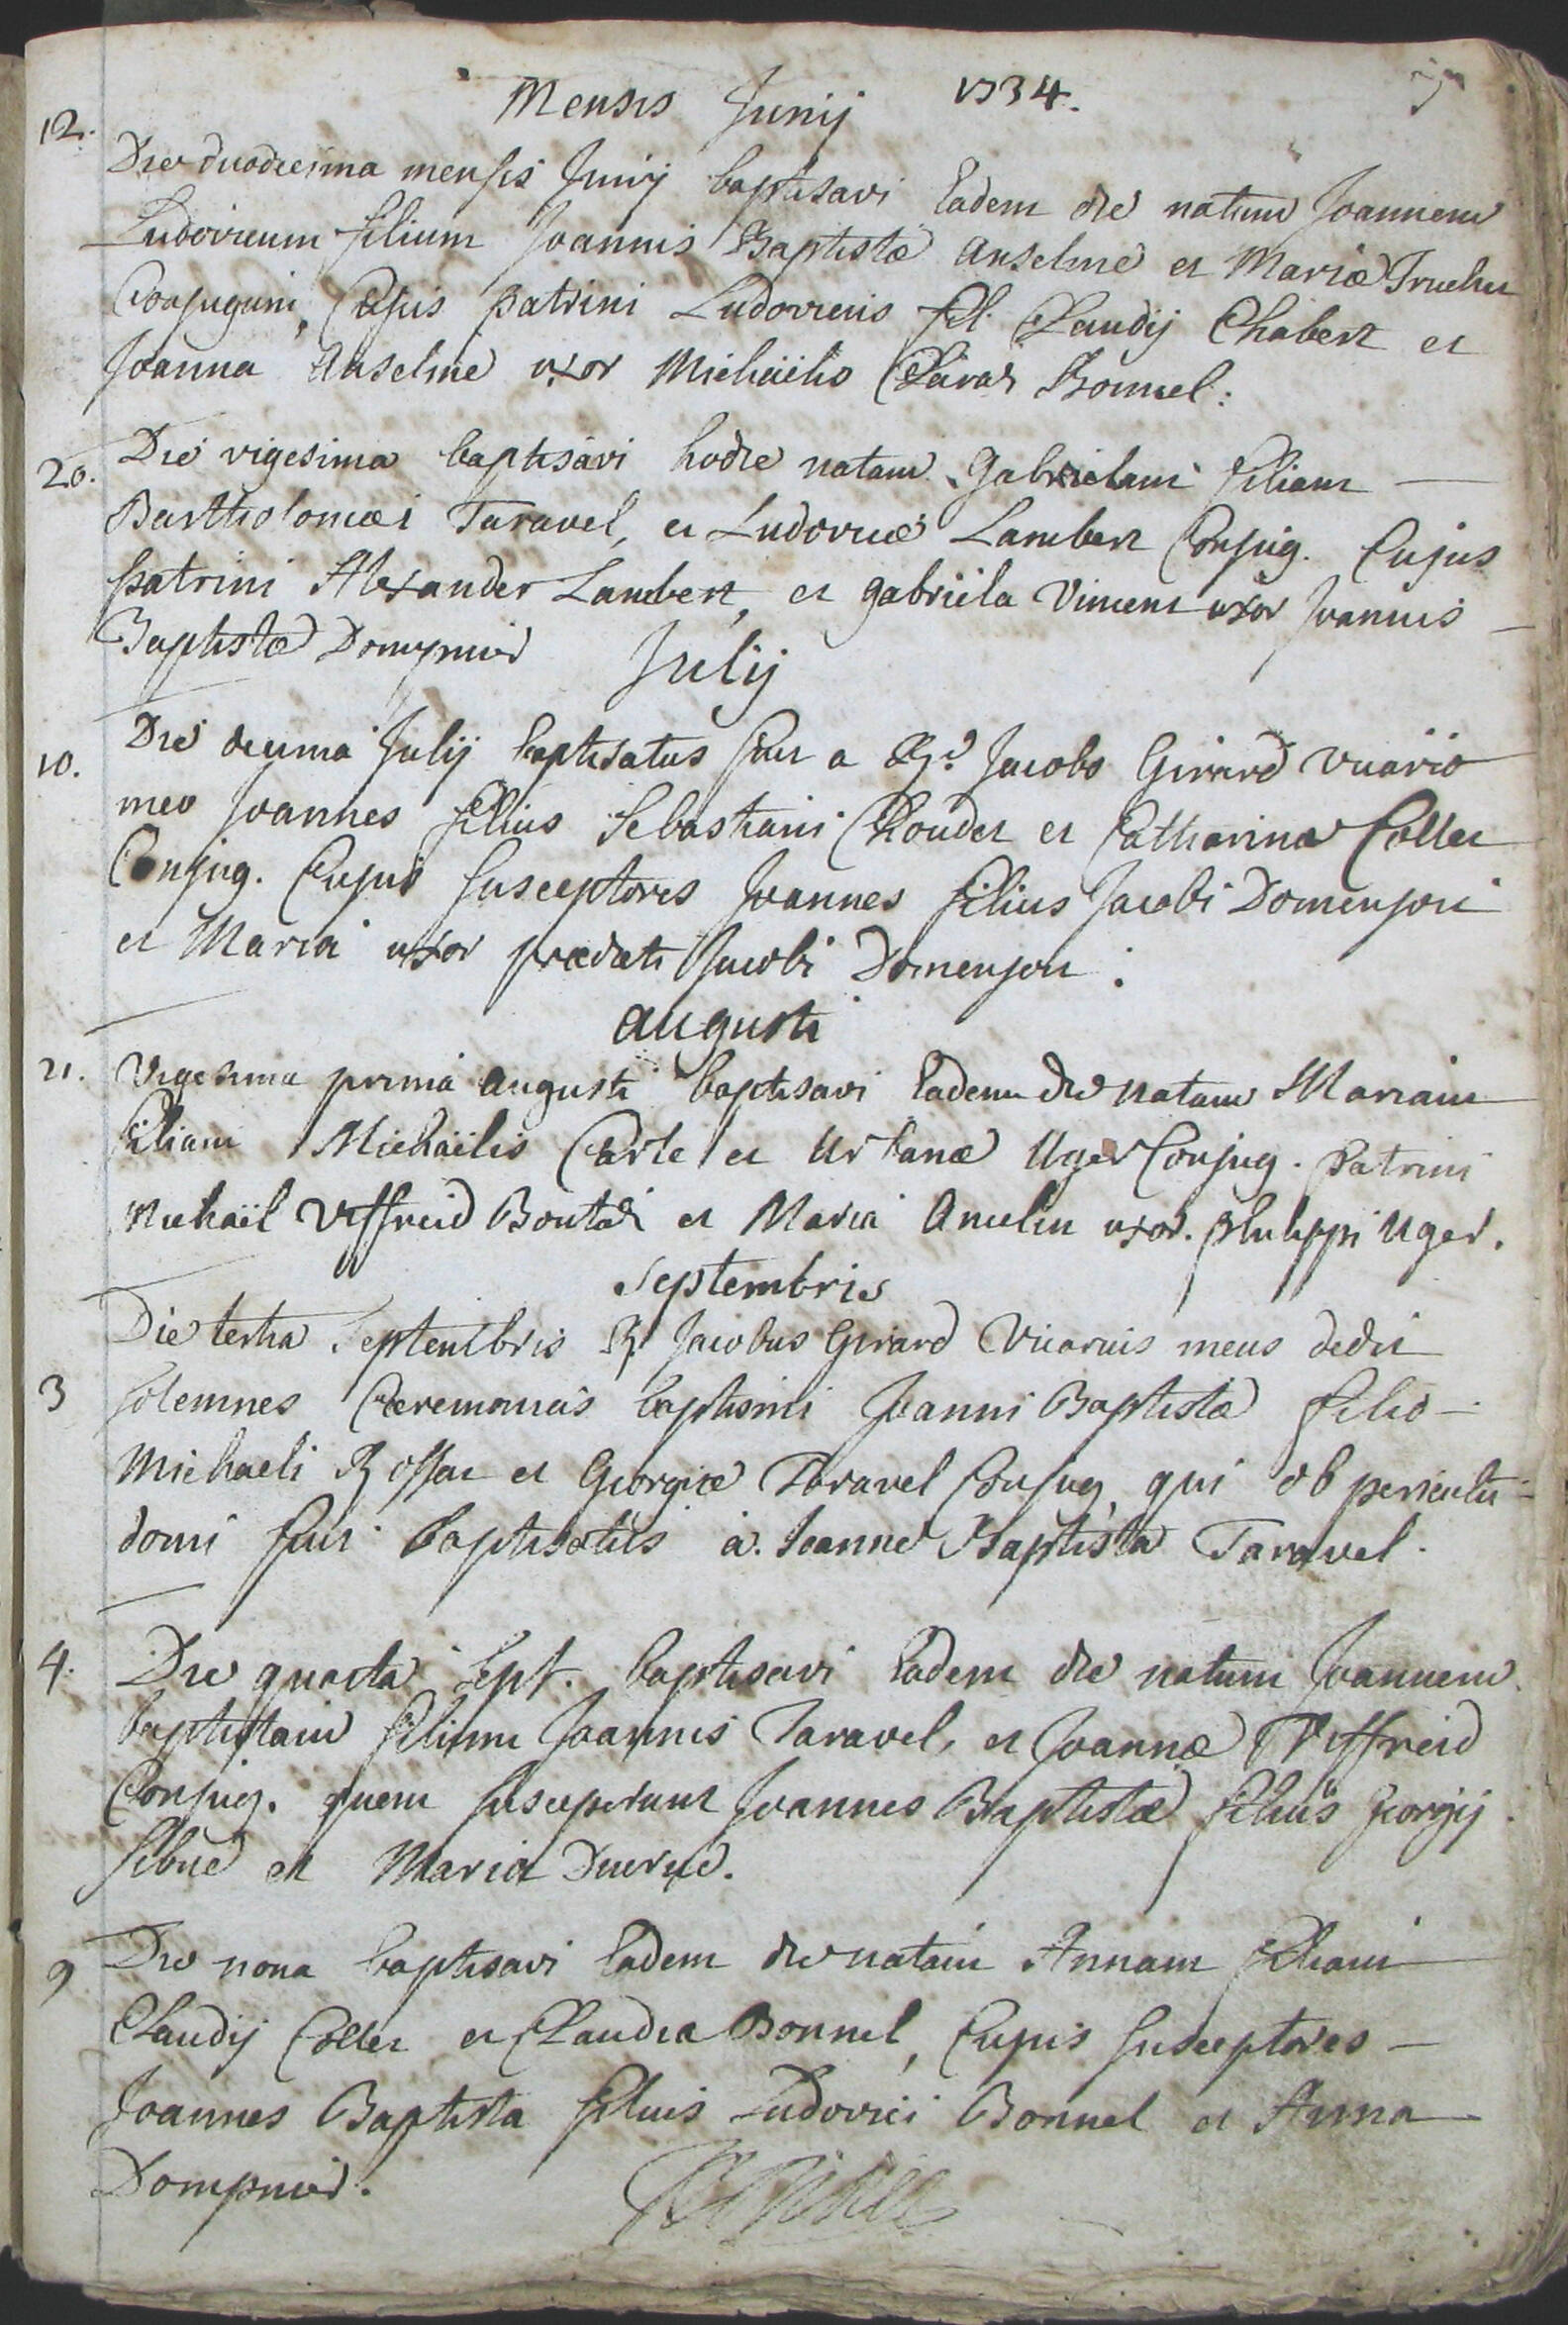 Mensis Junij 1734.
12. Die duodecima mensis Junij baptisavi Eadem die natum Joannem
Ludovicum filium Joannis Baptistæ Anselme et Mariæ Truchet
Conjugum, Cujus patrini Ludovicus fil. Claudij Chabert et
Joanna Anselme uxor Michäelis Claraz Bonnel:
20. Die vigesima baptisavi hodie natam Gabrielam filiam —
Bartholomæi Taravel, et Ludovicæ Lambert Conjug. Cujus
patrini Alexander Lambert, et gabriela Vincent uxor Joannis —
Baptistæ Dompnier
Julij
10. Die decima Julij baptisatus fuit a Rdo Jacobo Girard vicario
meo Joannes filius Sebastiani Clouder et Catharinæ Collet
Conjug. Cujus susceptores Joannes filius Jacobi Domenjon
et Maria uxor prædicti Jacobi Domenjon.
Augusti
21. Vigesima prima Augusti baptisavi Eadem die natam Mariam
filiam Michäelis Carle et Urbanæ Uger Conjug. patrini
Michaël Viffreid Boutaz et Maria Ancelin uxor. philippi Uger.
Septembris
3 Die tertia Septembris R. Jacobus Girard Vicarius meus dedit
solemnes Ceremonias baptismi Joanni Baptistæ filio —
Michaeli Rossat et Georgiæ Taravel Conjug, qui ob periculu
domi fuit baptisatus a. Joanne Baptista Taravel.
4. Die quarta Sept. baptisavi Eadem die natum Joannem
baptistam filium Joannis Taravel, et Joannæ Viffreid
Conjug. quem susceperunt Joannes Baptista filius Georgij
Sibué et Maria Ducrué.
9 Die nona baptisavi Eadem die natam Annam filiam
Claudij Collet et Claudia Bonnel, Cujus susceptores —
Joannes Baptista filius Ludovici Bonnel et Anna
Dompnier.